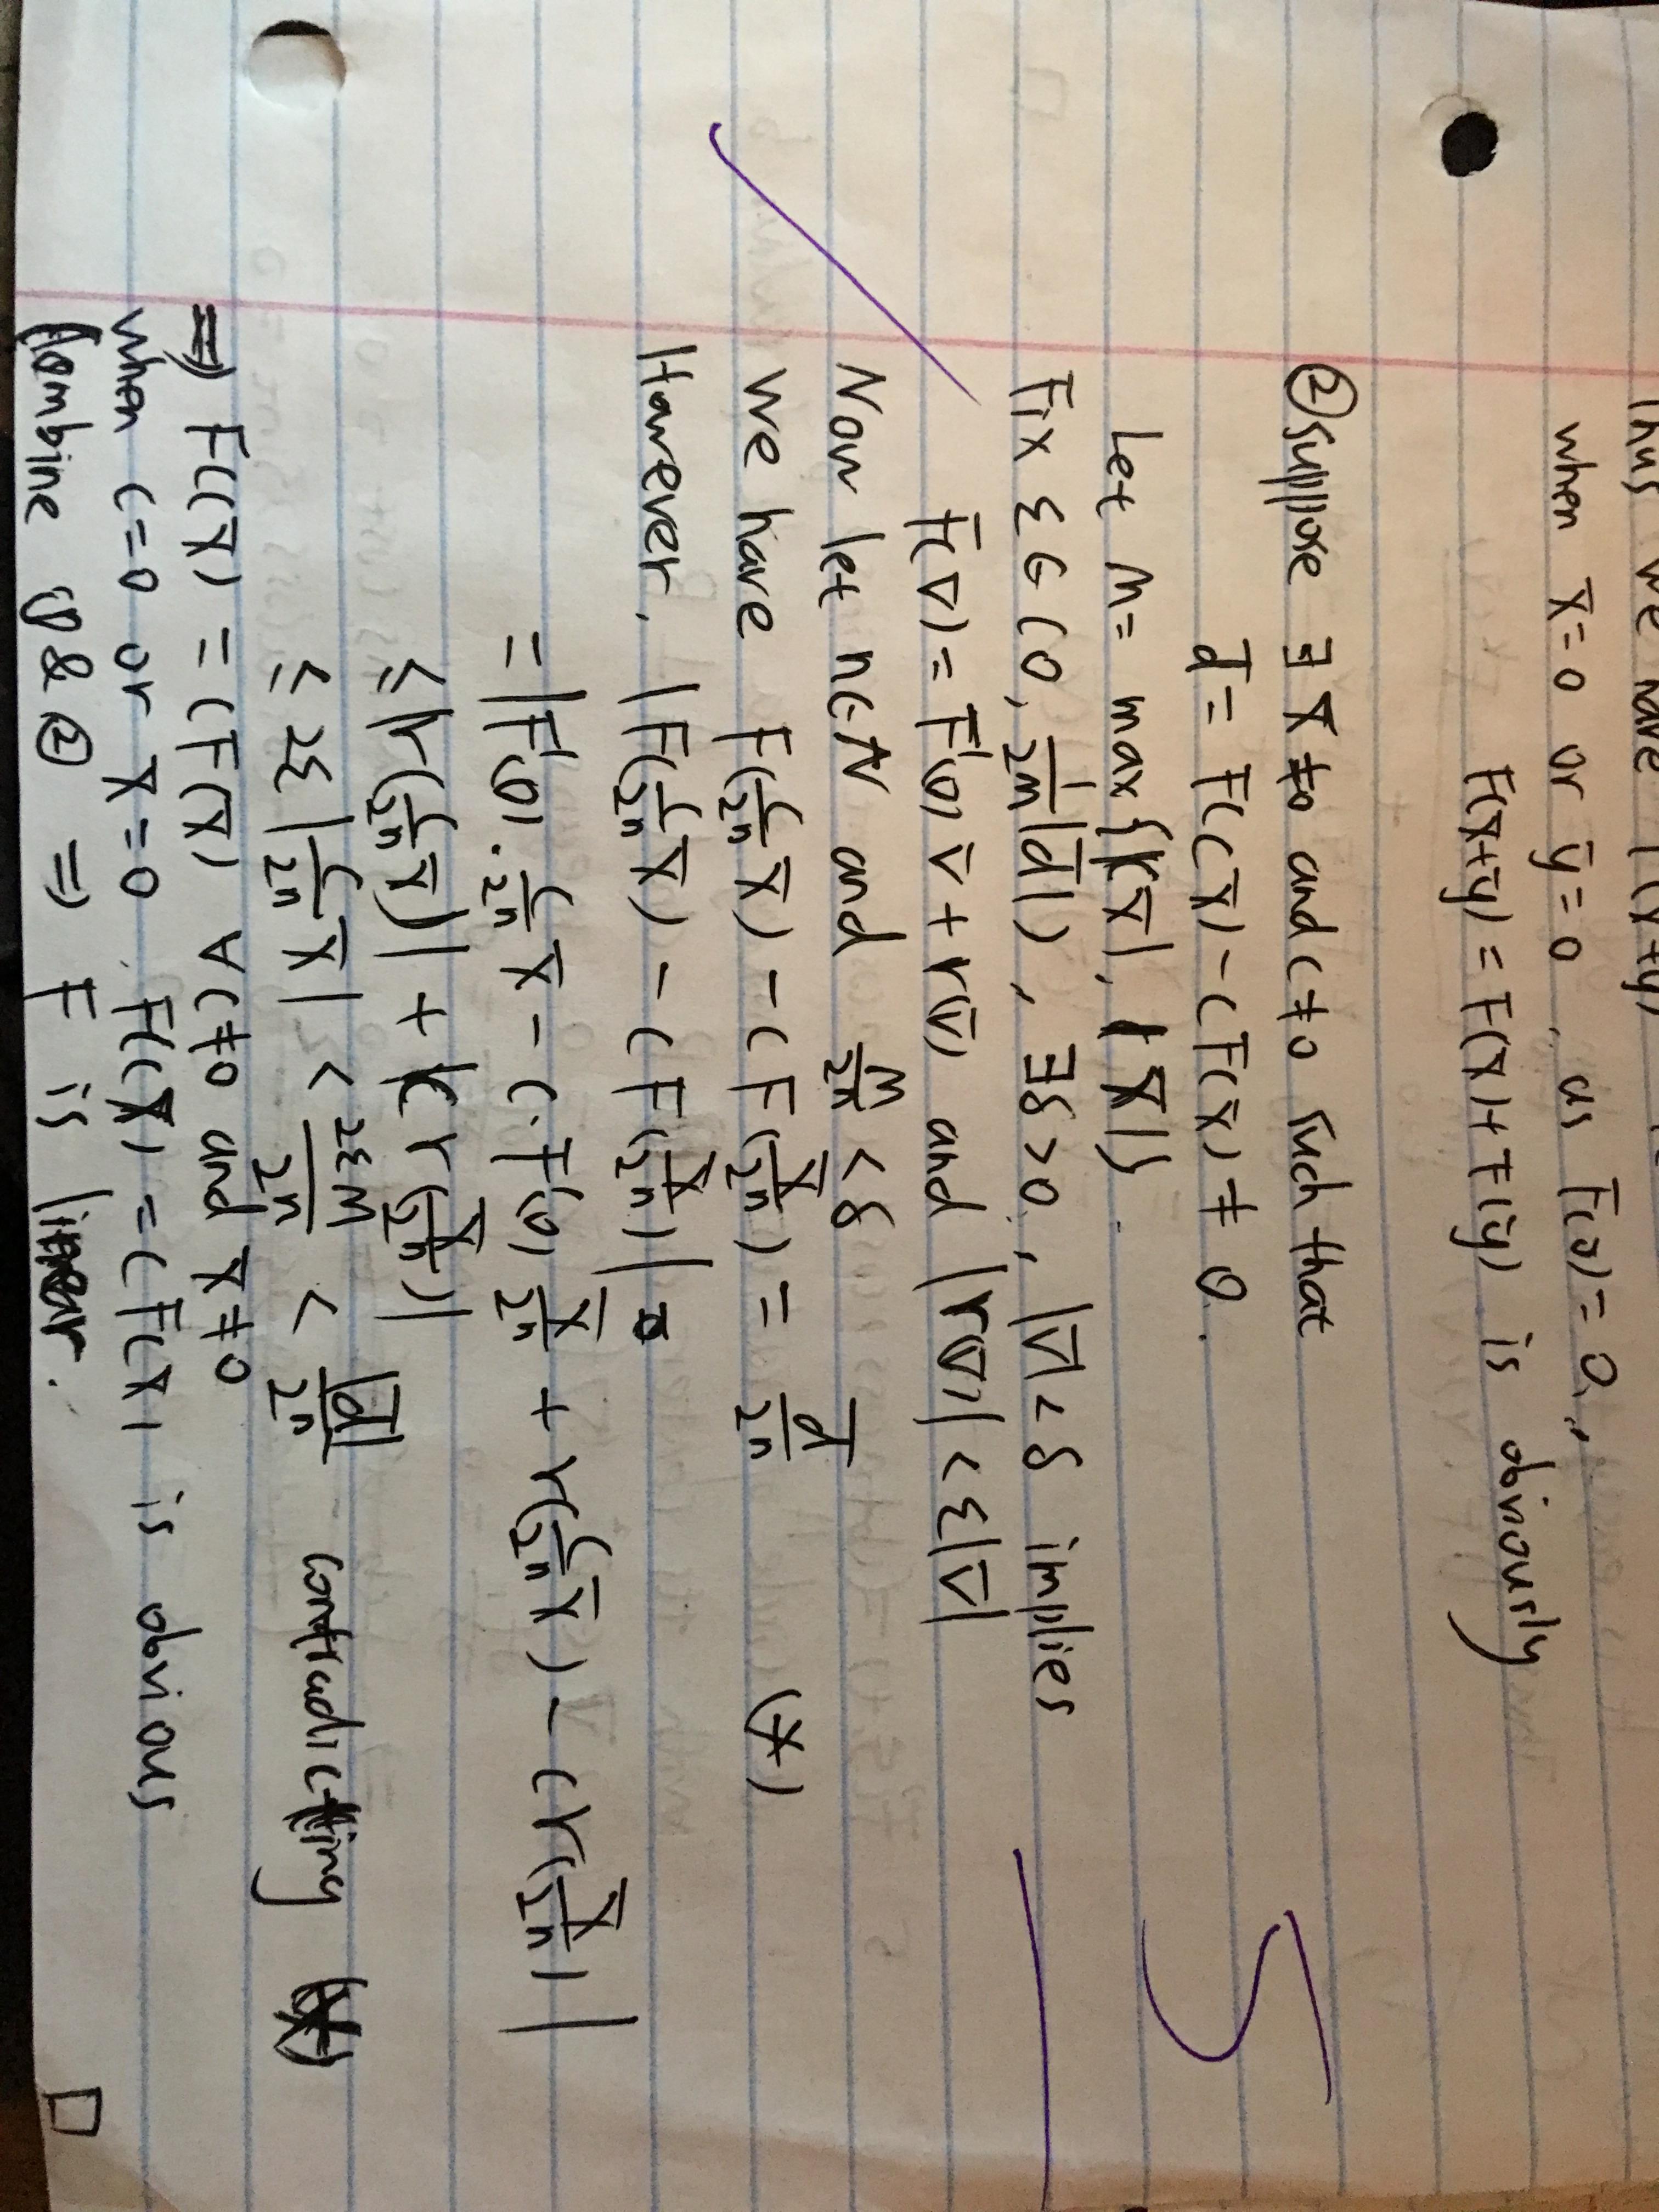 Thus we have F(x̄+ȳ)
when x̄=0 or ȳ=0, as F(0)=0,
F(x̄+ȳ) = F(x̄)+F(ȳ) is obviously
② Suppose ∃ x̄≠0 and c≠0 such that
d̄ = F(cx̄) - cF(x̄) ≠ 0.
5
Let M = max{|cx̄|, |x̄|}.
Fix ε∈(0, 1/2M |d̄|), ∃δ>0, |v̄|<δ implies
F(v̄) = F'(0)v̄ + r(v̄) and |r(v̄)| < ε|v̄|
Now let n∈N and M/2ⁿ < δ
We have F(c/2ⁿ x̄) - cF(x̄/2ⁿ) = d̄/2ⁿ (*)
However, |F(c/2ⁿ x̄) - cF(x̄/2ⁿ)|
= |F'(0)·c/2ⁿ x̄ - c·F'(0) x̄/2ⁿ + r(c/2ⁿ x̄) - cr(x̄/2ⁿ)|
≤ |r(c/2ⁿ x̄)| + |cr(x̄/2ⁿ)|
≤ 2ε|c/2ⁿ x̄| < 2εM/2ⁿ < |d̄|/2ⁿ contradicting (*)
⇒ F(cx̄) = cF(x̄) ∀c≠0 and x̄≠0
when c=0 or x̄=0, F(cx̄) = cF(x̄) is obvious
Combine ①&② ⇒ F is linear. □